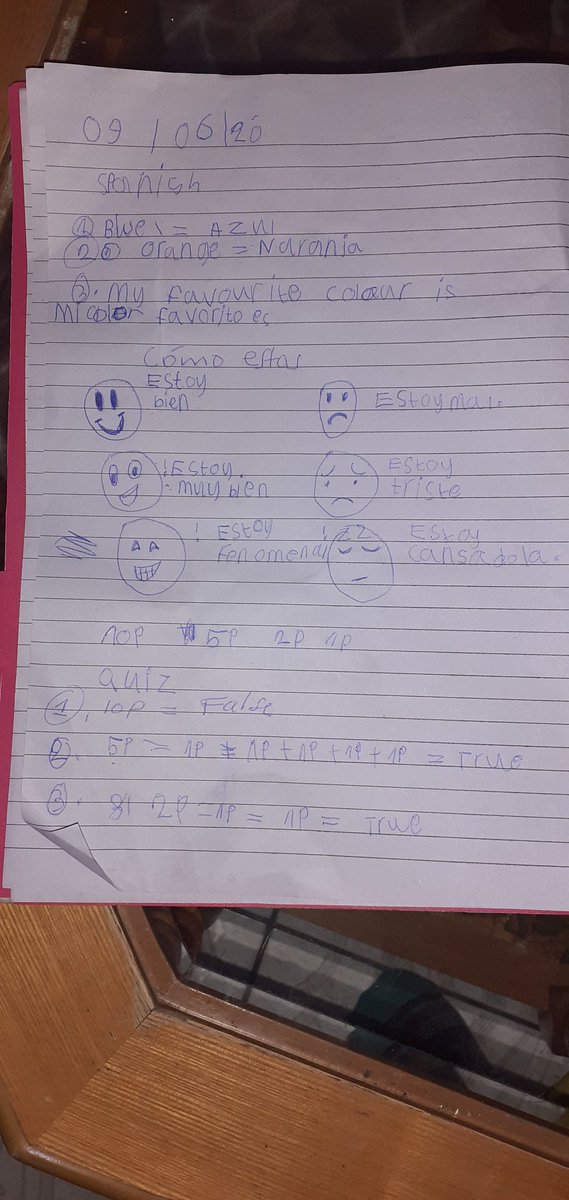 09 / 06/20
Spanish
① Blue = Azul
② Orange = Naranja
③. My favourite colour is
Mi color favorito es
Cómo estas
Estoy
bien
Estoy mal.
¡Estoy
muy bien
Estoy
triste
¡Estoy
fenomenal!
ZZ
Estoy
cansadola.
10p 5p 2p 1p
Quiz
①. 10p = False
②. 5p = 1p + 1p + 1p + 1p + 1p = True
③. 2p - 1p = 1p = True